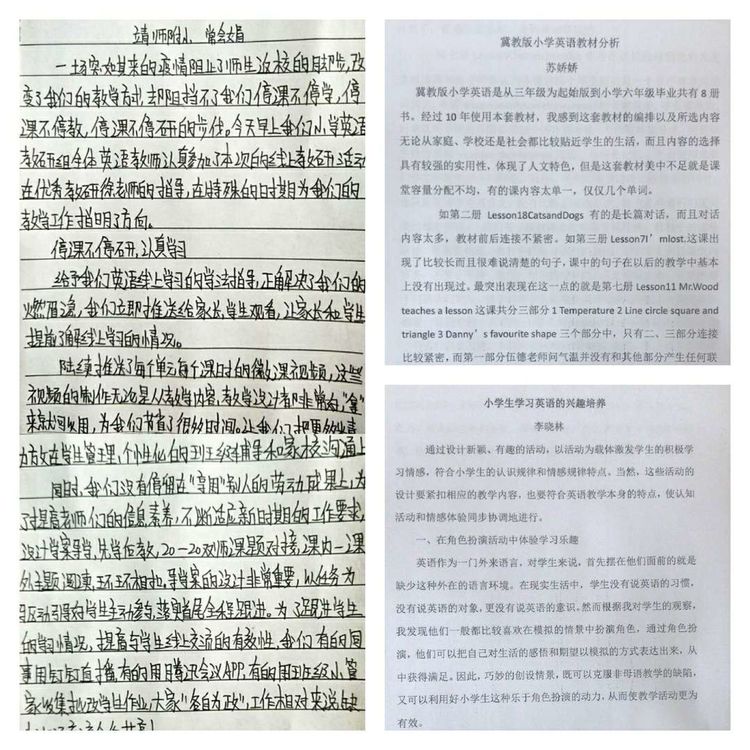 靖师附小 常会娟
一场突如其来的疫情阻止了师生返校的脚步,改
变了我们的教学方式,却阻挡不了我们停课不停学,停
课不停教,停课不停研的步伐,今天早上我们小学英语
教研组全体英语教师认真参加了本次的线上教研活动
在优秀教研徐老师的指导,在特殊的日期为我们的
教学工作指明了方向。
停课不停研,认真学习
给予我们英语线上学习的学法指导,正解决了我们的
燃眉急,我们立即推送给家长,学生观看,让家长和学生
提前了解线上学习的情况。
陆续推送了每个单元每个课时的微课视频,这些
视频的制作无论是从教学内容,教学设计都非常好,"拿"
来就可以用,为我们节省了很多时间,让我们把更多的
力放在学生管理,个性化的班级辅导和家校沟通上
同时,我们没有停留在"享用"别人的劳动成果上,为
了提高老师们的信息素养,不断适应新时期的工作要求,
设计学案导学,先学后教,20-20双师课题对接,课内一课
外主题阅读,环环相扣,导学案的设计非常重要,以任务为
驱动引导好学生主动参与,落实首尾全程跟进。为了跟进学生
的学习情况,提高与学生线上交流的有效性,我们有的同
事用钉钉直播,有的用腾讯会议APP,有的用班级小管
家收集批改学生作业,大家"各自为政",工作相对来说缺
冀教版小学英语教材分析
苏娇娇
冀教版小学英语是从三年级为起始版到小学六年级毕业共有 8 册
书。经过 10 年使用本套教材,我感到这套教材的编排以及所选内容
无论从家庭、学校还是社会都比较贴近学生的生活,而且内容的选择
具有较强的实用性,体现了人文特色,但是这套教材美中不足就是课
堂容量分配不均,有的课内容太单一,仅仅几个单词。
如第二册 Lesson18CatsandDogs 有的是长篇对话,而且对话
内容太多,教材前后连接不紧密。如第三册 Lesson7I'mlost.这课出
现了比较长而且很难说清楚的句子,课中的句子在以后的教学中基本
上没有出现过。最突出表现在这一点的就是第七册 Lesson11 Mr.Wood
teaches a lesson 这课共分三部分 1 Temperature 2 Line circle square and
triangle 3 Danny's favourite shape 三个部分中,只有二、三部分连接
比较紧密,而第一部分伍德老师问气温并没有和其他部分产生任何联
小学生学习英语的兴趣培养
李晓林
通过设计新颖、有趣的活动,以活动为载体激发学生的积极学
习情感,符合小学生的认识规律和情感规律特点。当然,这些活动的
设计要紧扣相应的教学内容,也要符合英语教学本身的特点,使认知
活动和情感体验同步协调地进行。
一、在角色扮演活动中体验学习乐趣
英语作为一门外来语言,对学生来说,首先摆在他们面前的就是
缺少这种外在的语言环境。在现实生活中,学生没有说英语的习惯,
没有说英语的对象,更没有说英语的意识。然而根据我对学生的观察,
我发现他们一般都比较喜欢在模拟的情景中扮演角色,通过角色扮
演,他们可以把自己对生活的感悟和期望以模拟的方式表达出来,从
中获得满足。因此,巧妙的创设情景,既可以克服非母语教学的缺陷,
又可以利用好小学生这种乐于角色扮演的动力,从而使教学活动更为
有效。